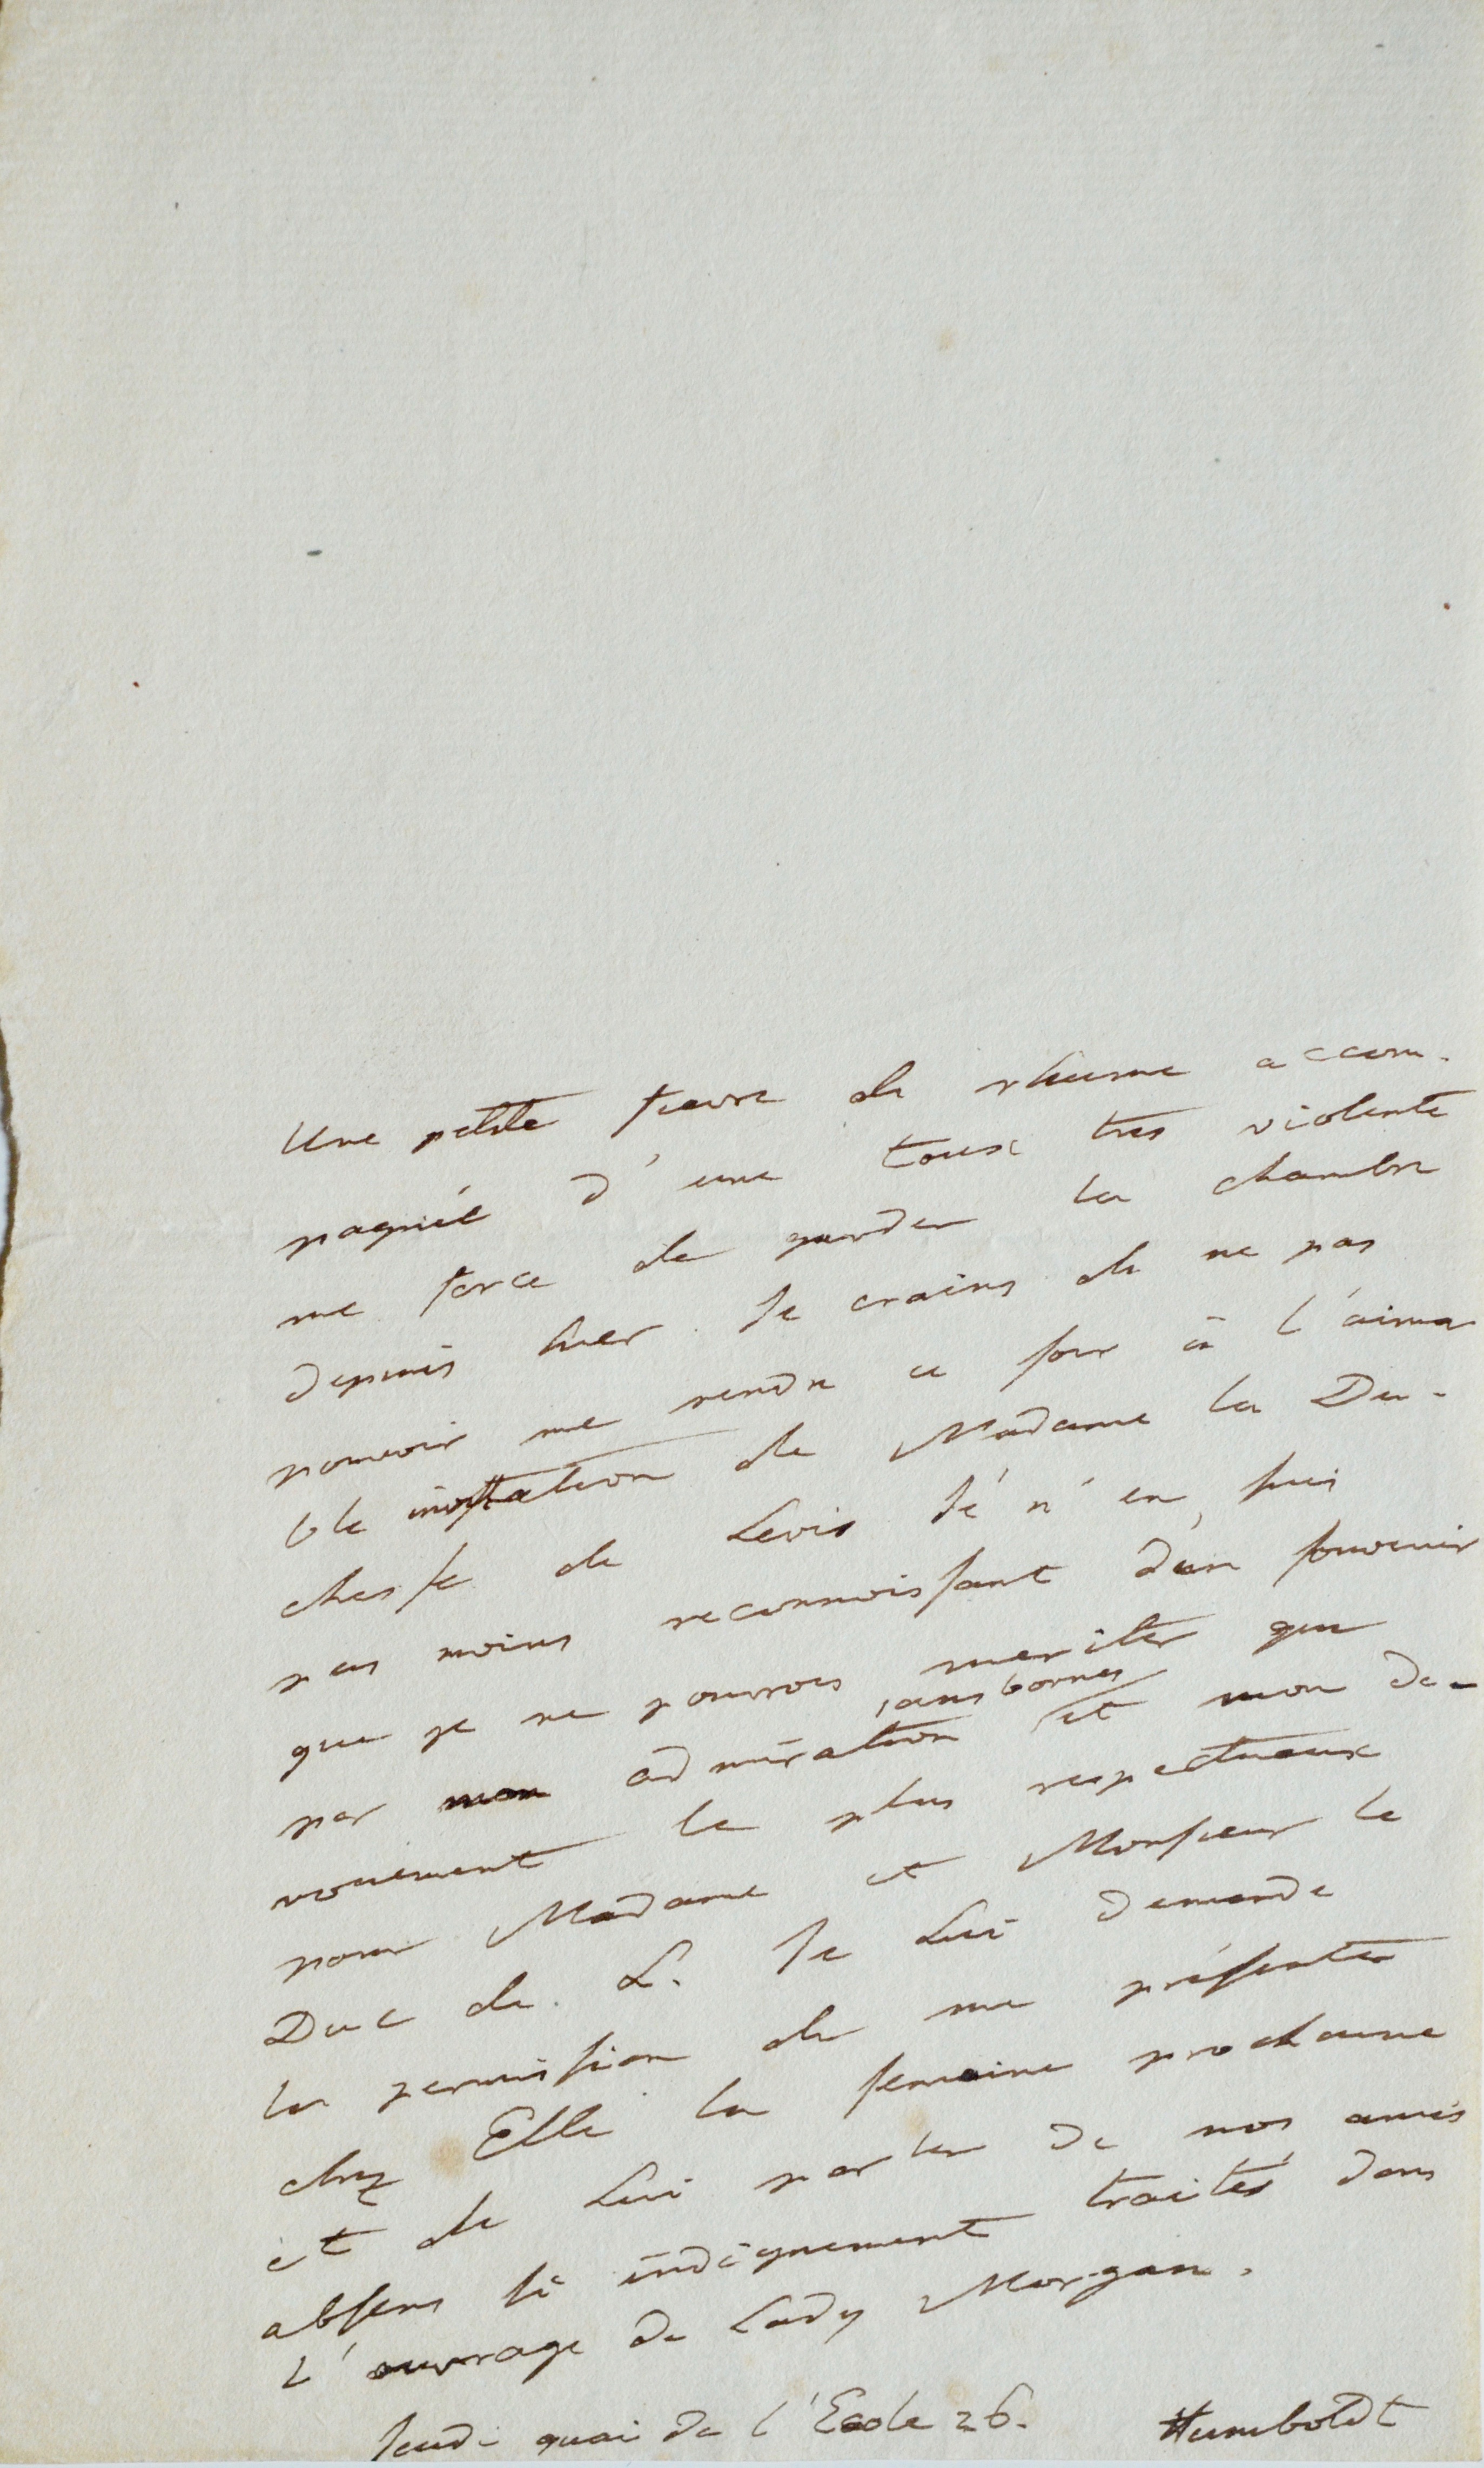 Une petite fievre de rhume accom-
pagnée d'une toux tres violente
me force de garder la chambre
depuis hier. Je crains de ne pas
pouvoir me rendre ce soir à l'aima
ble invitation de Madame la Du-
chesse de Levis Je n'en suis
pas moins reconnoissant d'un souvenir
que je ne pourrois meriter que
par mon admiration sans bornes et mon de-
vouement le plus respectueux
pour Madame et Monsieur le
Duc de L. Je Lui demande
la permission de me présenter
chez Elle la semaine prochaine
et de Lui parler de nos amis
absens si indignement traités dans
l'ouvrage de Lady Morgan.
Jeudi quai de l'Ecole 26. Humboldt